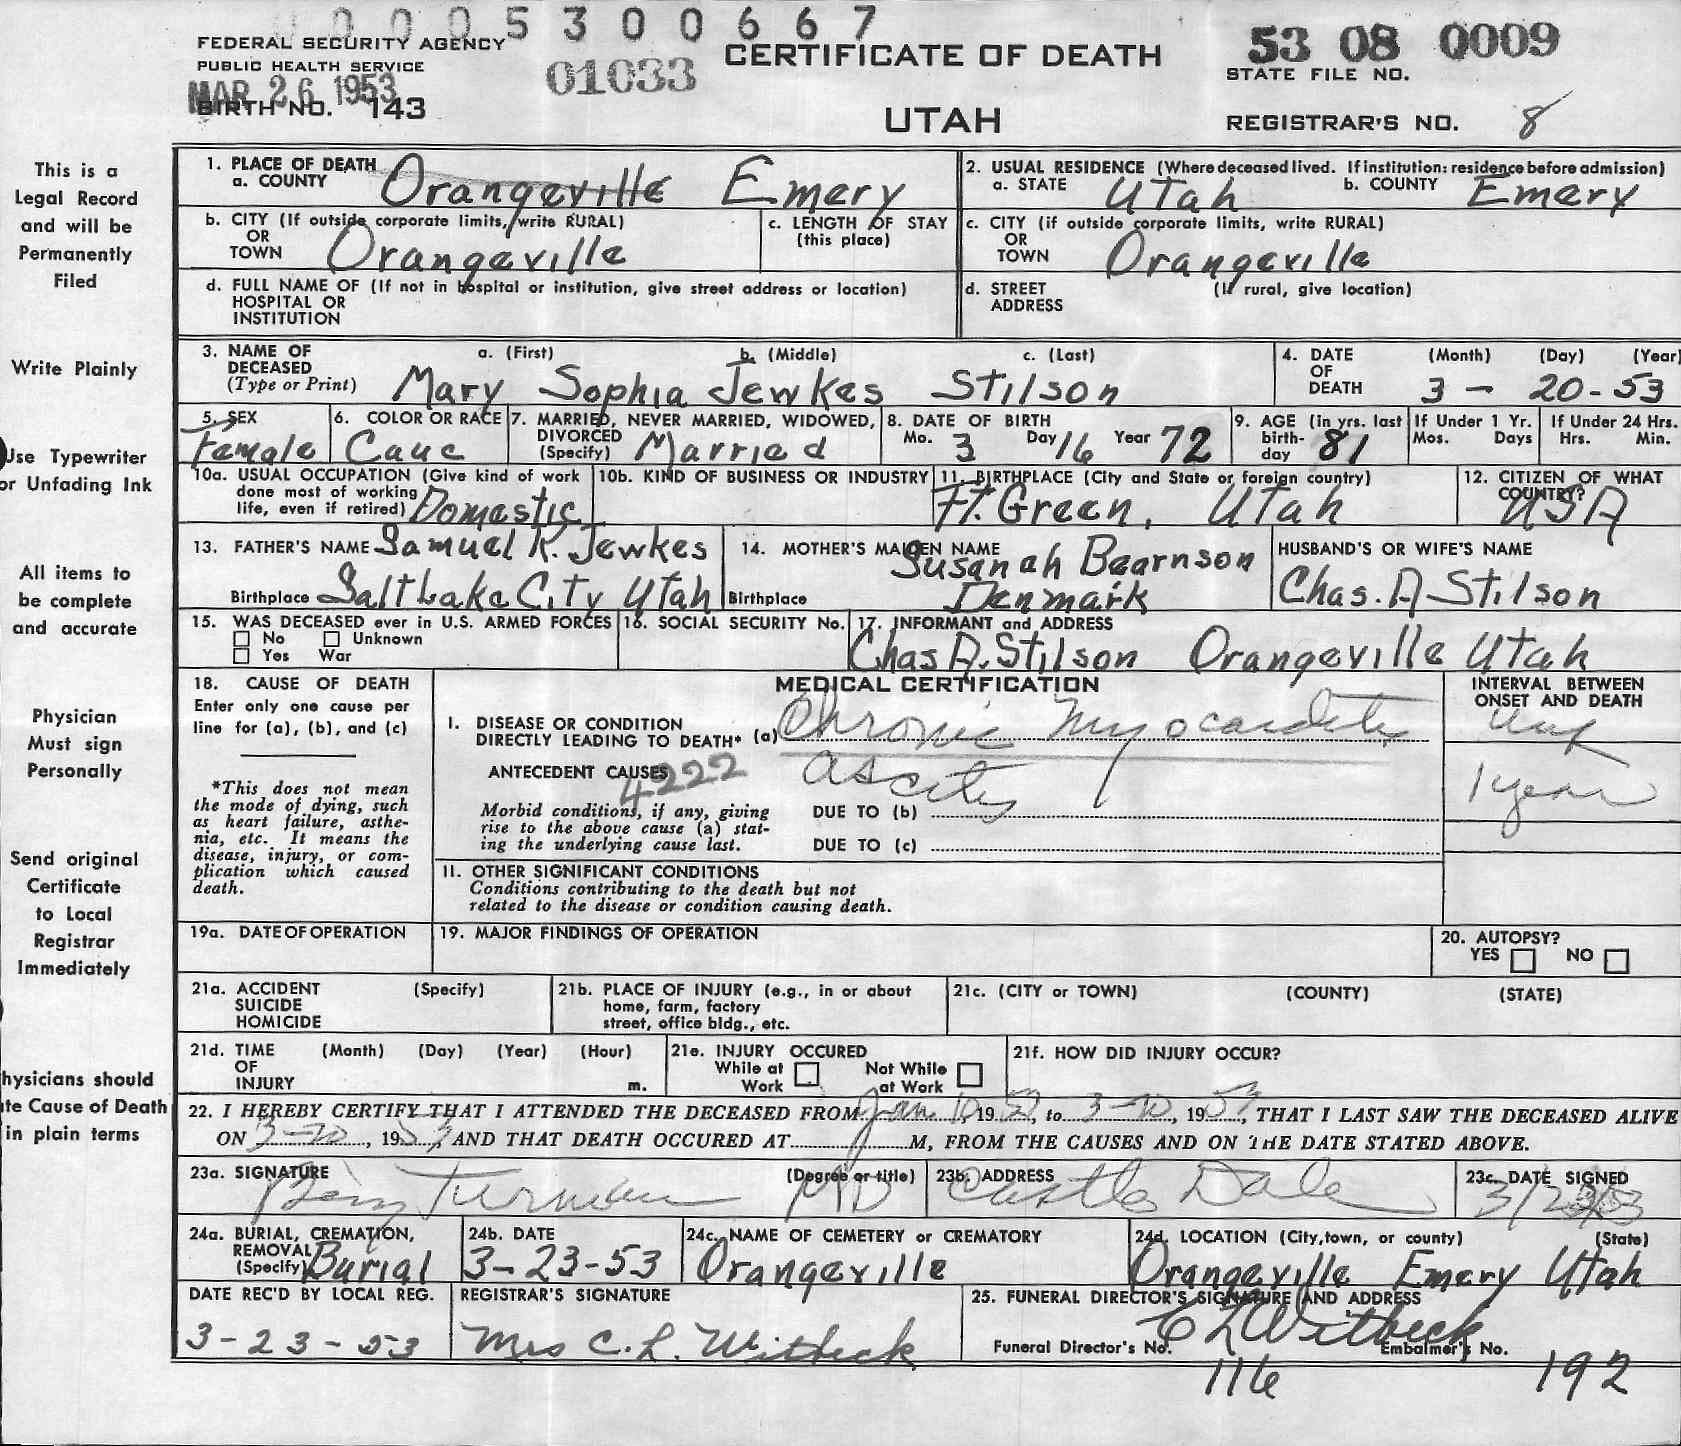 0 0 0 5 3 0 0 6 6 7
FEDERAL SECURITY AGENCY
PUBLIC HEALTH SERVICE
MAR 26 1953
BIRTH NO. 143
01033
CERTIFICATE OF DEATH
UTAH
53 08 0009
STATE FILE NO.
REGISTRAR'S NO. 8
This is a
Legal Record
and will be
Permanently
Filed
Write Plainly
Use Typewriter
or Unfading Ink
All items to
be complete
and accurate
Physician
Must sign
Personally
Send original
Certificate
to Local
Registrar
Immediately
hysicians should
te Cause of Death
in plain terms
1. PLACE OF DEATH
a. COUNTY Orangeville Emery
2. USUAL RESIDENCE (Where deceased lived. If institution: residence before admission)
a. STATE Utah b. COUNTY Emery
b. CITY (If outside corporate limits, write RURAL)
OR
TOWN Orangeville
c. LENGTH OF STAY
(this place)
c. CITY (if outside corporate limits, write RURAL)
OR
TOWN Orangeville
d. FULL NAME OF (If not in hospital or institution, give street address or location)
HOSPITAL OR
INSTITUTION
d. STREET (If rural, give location)
ADDRESS
3. NAME OF DECEASED
(Type or Print)
a. (First) b. (Middle) c. (Last)
Mary Sophia Jewkes Stilson
4. DATE OF DEATH
(Month) (Day) (Year)
3 - 20 - 53
5. SEX
Female
6. COLOR OR RACE
Cauc
7. MARRIED, NEVER MARRIED, WIDOWED,
DIVORCED
(Specify) Married
8. DATE OF BIRTH
Mo. 3 Day 16 Year 72
9. AGE (in yrs. last
birth-
day 81
If Under 1 Yr.
Mos. Days
If Under 24 Hrs.
Hrs. Min.
10a. USUAL OCCUPATION (Give kind of work
done most of working
life, even if retired) Domestic
10b. KIND OF BUSINESS OR INDUSTRY
11. BIRTHPLACE (City and State or foreign country)
Ft. Green, Utah
12. CITIZEN OF WHAT
COUNTRY?
USA
13. FATHER'S NAME Samuel R. Jewkes
Birthplace Salt Lake City Utah
14. MOTHER'S MAIDEN NAME
Susanah Bearnson
Birthplace Denmark
HUSBAND'S OR WIFE'S NAME
Chas. A Stilson
15. WAS DECEASED ever in U.S. ARMED FORCES
No Unknown
Yes War
16. SOCIAL SECURITY No.
17. INFORMANT and ADDRESS
Chas A. Stilson Orangeville Utah
18. CAUSE OF DEATH
Enter only one cause per
line for (a), (b), and (c)
*This does not mean
the mode of dying, such
as heart failure, asthe-
nia, etc. It means the
disease, injury, or com-
plication which caused
death.
MEDICAL CERTIFICATION
I. DISEASE OR CONDITION
DIRECTLY LEADING TO DEATH* (a) Chronic Myocardits
ANTECEDENT CAUSES
4222
Ascites
Morbid conditions, if any, giving
rise to the above cause (a) stat-
ing the underlying cause last.
DUE TO (b)
DUE TO (c)
INTERVAL BETWEEN
ONSET AND DEATH
Unk
1 year
II. OTHER SIGNIFICANT CONDITIONS
Conditions contributing to the death but not
related to the disease or condition causing death.
19a. DATE OF OPERATION
19. MAJOR FINDINGS OF OPERATION
20. AUTOPSY?
YES NO
21a. ACCIDENT (Specify)
SUICIDE
HOMICIDE
21b. PLACE OF INJURY (e.g., in or about
home, farm, factory
street, office bldg., etc.
21c. (CITY or TOWN) (COUNTY) (STATE)
21d. TIME (Month) (Day) (Year) (Hour)
OF
INJURY m.
21e. INJURY OCCURED
While at Work
Not While at Work
21f. HOW DID INJURY OCCUR?
22. I HEREBY CERTIFY THAT I ATTENDED THE DECEASED FROM Jan 19 to 3-20, 1953, THAT I LAST SAW THE DECEASED ALIVE
ON 3-20, 1953 AND THAT DEATH OCCURED AT M, FROM THE CAUSES AND ON THE DATE STATED ABOVE.
23a. SIGNATURE (Degree or title)
Turman MD
23b. ADDRESS
Castle Dale
23c. DATE SIGNED
24a. BURIAL, CREMATION,
REMOVAL
(Specify) Burial
24b. DATE
3-23-53
24c. NAME OF CEMETERY or CREMATORY
Orangeville
24d. LOCATION (City, town, or county) (State)
Orangeville Emery Utah
DATE REC'D BY LOCAL REG.
3-23-53
REGISTRAR'S SIGNATURE
Mrs C. L. Witbeck
25. FUNERAL DIRECTOR'S SIGNATURE AND ADDRESS
C L Witbeck
Funeral Director's No. 116
Embalmer's No. 192